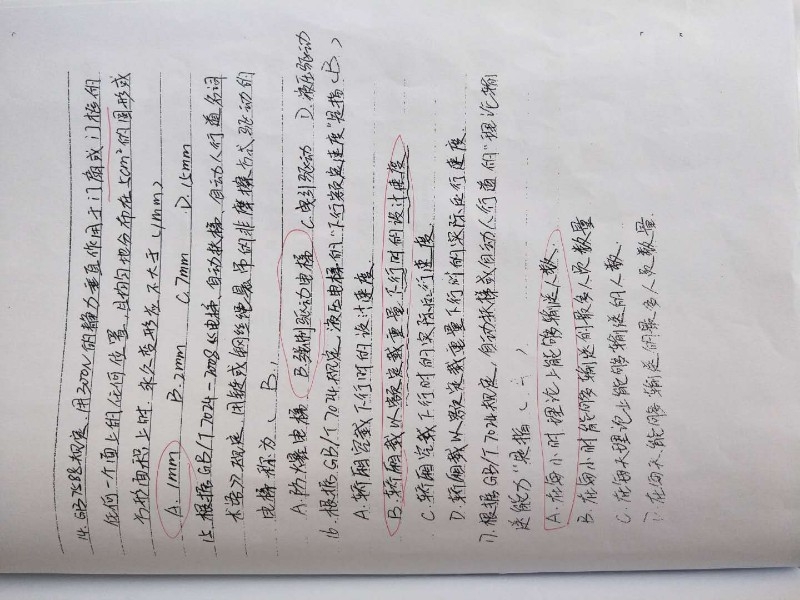 14. GB7588规定,用300N的静力垂直作用于门扇或门框的
任何一个面上的任何位置,且均匀地分布在5cm²的圆形或
方形面积上时,永久变形应不大于(1mm)
A. 1mm B. 2mm C. 7mm D. 15mm
15. 根据GB/T7024-2008《电梯、自动扶梯、自动人行道名词
术语》规定,用链或钢丝绳悬吊的非摩擦方式驱动的
电梯称为(B.)
A. 防爆电梯 B. 强制驱动电梯 C. 曳引驱动 D. 液压驱动
16. 根据GB/T7024规定,液压电梯的"下行额定速度"是指(B.)
A. 轿厢空载下行时的设计速度.
B. 轿厢载以额定载重量下行时的设计速度
C. 轿厢空载下行时的实际运行速度
D. 轿厢载以额定载重量下行时的实际运行速度
17. 根据GB/T7024规定,自动扶梯或自动人行道的"理论输
送能力"是指( )
A. 在每小时理论上能够输送人数.
B. 在每小时能够输送的最多人员数量
C. 在每天理论上能够输送的人数.
D. 在每天能够输送的最多人员数量.